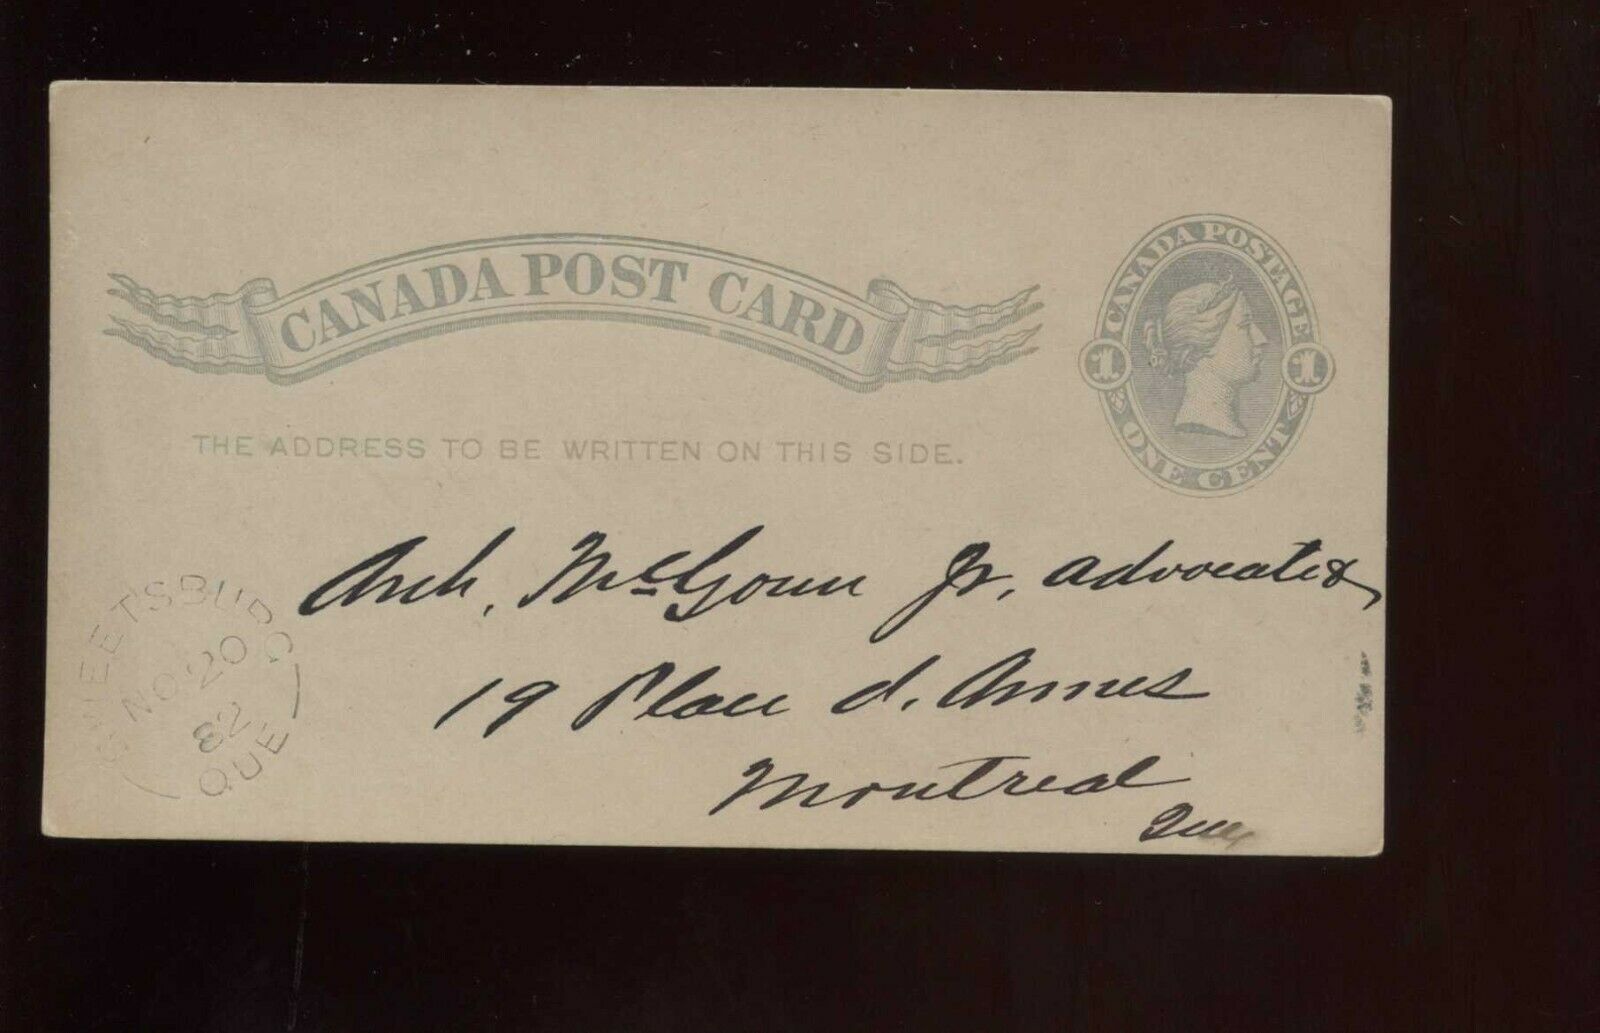 CANADA POST CARD
CANADA POSTAGE
1 1
ONE CENT
THE ADDRESS TO BE WRITTEN ON THIS SIDE.
Arch. McGoun Jr, advocate &
19 Place d. Armes
Montreal
Que
SWEETSBURG
NO 20
82
QUE